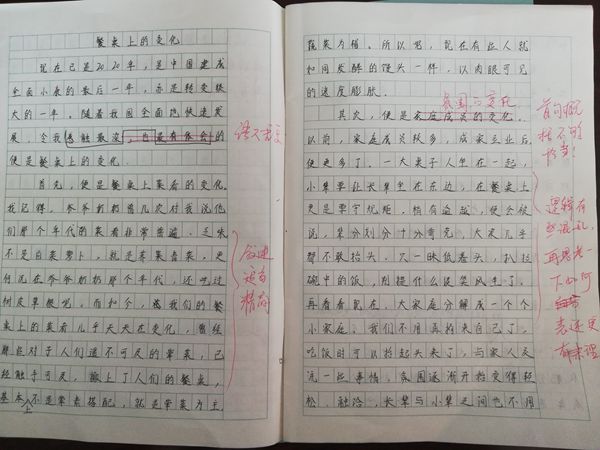 餐桌上的变化
现在已是2020年，是中国建成
全面小康的最后一年，亦是转变极
大的一年。随着我国全面飞快速发
展，令我感触最深，自是有体会的
便是餐桌上的变化。
首先，便是餐桌上菜肴的变化。
我记得，爷爷奶奶曾几次对我说他
们那个年代的菜肴非常普遍，无味
不是白菜萝卜，就是青菜香菜，更
何况在爷爷奶奶那个年代，还吃过
树皮草根呢。而如今，我们的餐
桌上的菜肴几乎天天在变化，曾经
那些对于人们遥不可及的荤菜，已
经触手可及，搬上了人们的餐桌，
基本上不是荤素搭配，就是荤菜为主
语句重复
叙述
没有
精简
蔬菜为辅。所以呢，现在有些人就
如同发酵的馒头一样，以肉眼可见
的速度膨胀。
氛围的变化
其次，便是家庭成员的变化。
以前，家庭成员颇多，成家立业后
便更多了。一大家子人坐在一起，
小辈要让长辈坐在左边，在餐桌上
更是要守规矩，稍有逾越，便会被
说，辈分划分十分夸克，大家几乎
都不敢抬头，只一昧低着头，扒拉
碗中的饭，别提什么谈笑风生了。
再看看现在，大家庭分解成一个个
小家庭。我们不用再拘束自己了，
吃饭时可以抬起头来了，与家人交
谈一些事情，氛围逐渐开始变得轻
松、融洽，长辈与小辈之间也不用
首句概
括不够
恰当！
逻辑有
些混乱，
再思考一
下如何
表述更
有条理